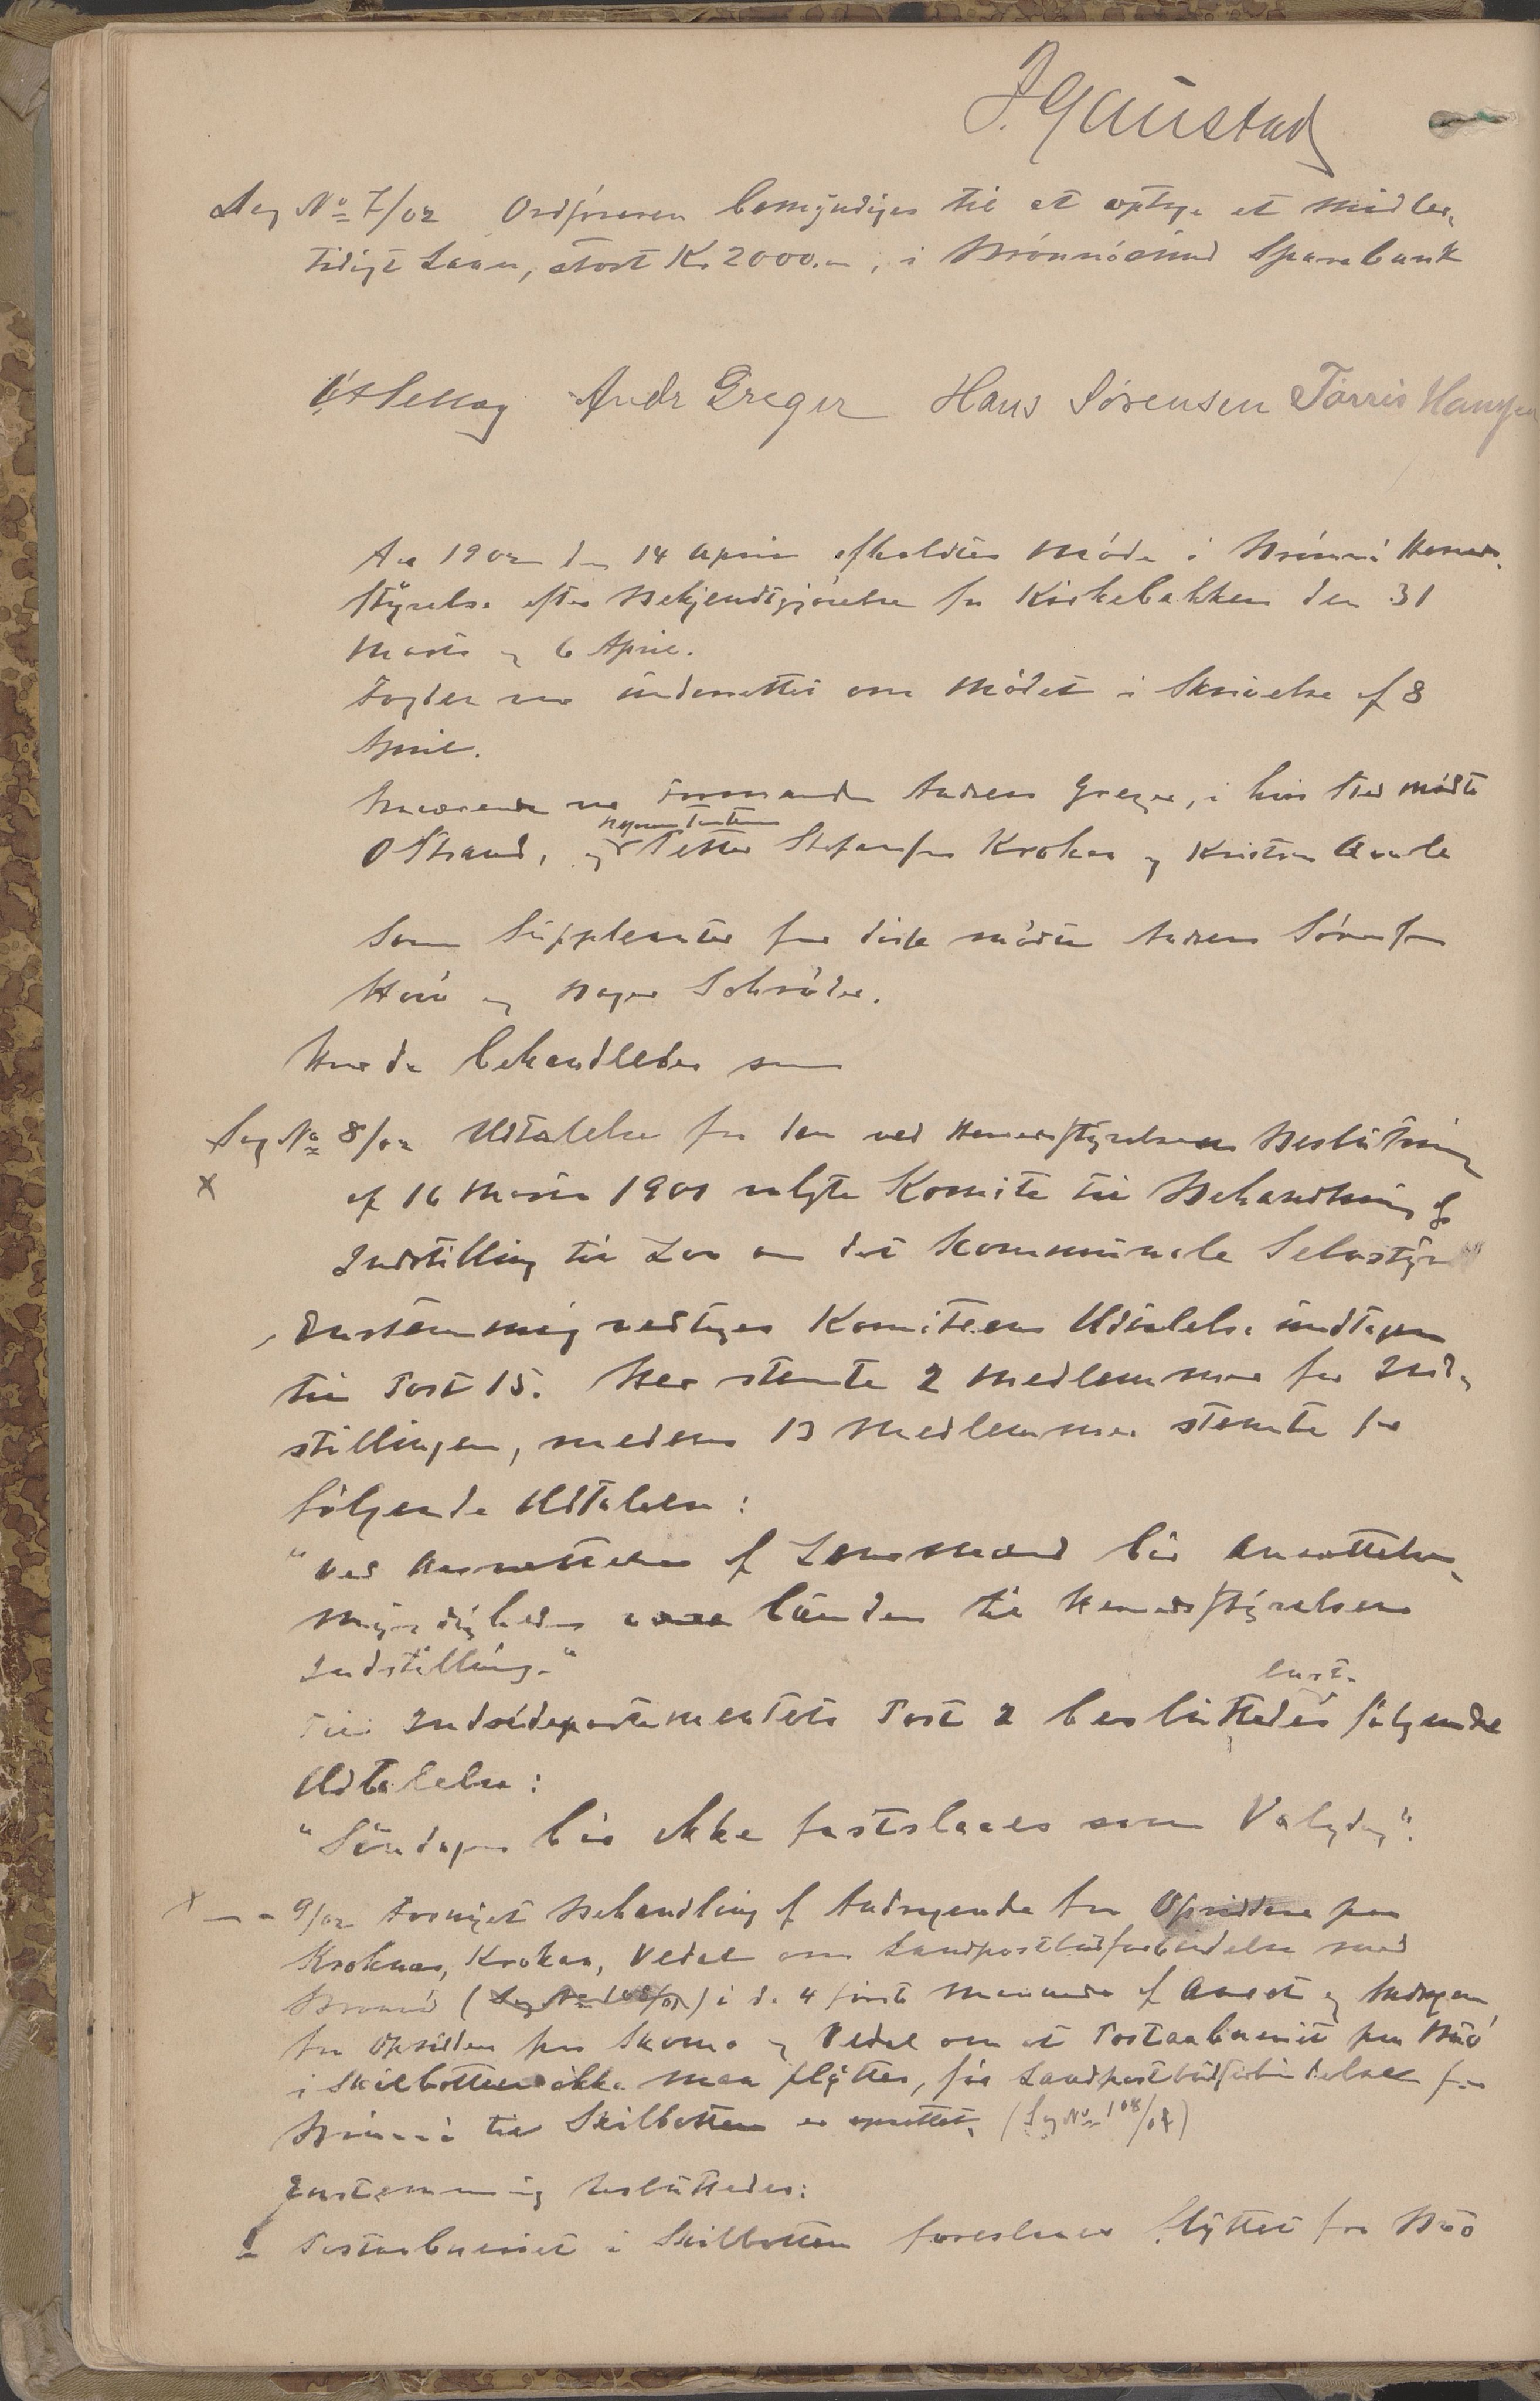 J. Gaustad
Sag No 7/02 Ordføreren bemyndiges til at optage et midler-
tidigt Laan, stort Kr 2000.-, i Brønnøsund Sparebank
Andr Greger Hans Sørensen Torris Hansen
Aar 1902 den 14 April afholdtes Møde i Brønnø Herreds-
styrelse efter Bekjendtgjørelse fra Kirkebakken den 31
Marts og 6 April.
Fogden var underrettet om Mødet i Skrivelse af 8
April.
Fraværende var Formanden Andreas Greger, i hvis sted mødte
O Strand, og repræsentanterne Petter Stefansen Krokan og Kristen
Som Suppleanter for disse mødte Andreas Sørensen
og Schrøder.
Hvorda behandledes som
Sag No 8/02 Udtalelse fra den ved Herredsstyrelsens Beslutning
x
af 16 Marts 1901 valgte Komite til Behandling af
Indstilling til Lov om det kommunale Selvstyre
Enstemmig vedtages Komiteens Udtalelse undtagen
til Post 15. Her stemte 2 Medlemmer for Ind-
stillingen, medens 13 Medlemmer stemte for
følgende Udtalelse:
"Ved Ansættelse af Lensmænd bør Ansættelses-
myndigheden være bunden til Herredsstyrelsens
Indstilling."
Til Indredepartementets Post 2 besluttedes enst. følgende
Udtalelse:
"Søndagen bør ikke fastslaaes som Valgdag".
x — - 9/02 Fornyet Behandling af Andragende fra Opsiddere paa
Kroknes, Krokan, Vedal om Landpostbudforbindelse med
Brønnø (Sag No 108/01) i de 4 første Maaneder af Aaret og Andragen
fra Opsiddere paa Skomo og Vedal om at Postaabneriet paa
i Skilbotten ikke maa flyttes, før Landpostbudforbindelsen fra
Brønnø til Skilbotten er oprettet. (Sag No 108/01)
Enstemmig besluttedes:
1 Postaabneriet i Skilbotten foreslaaes flyttet fra